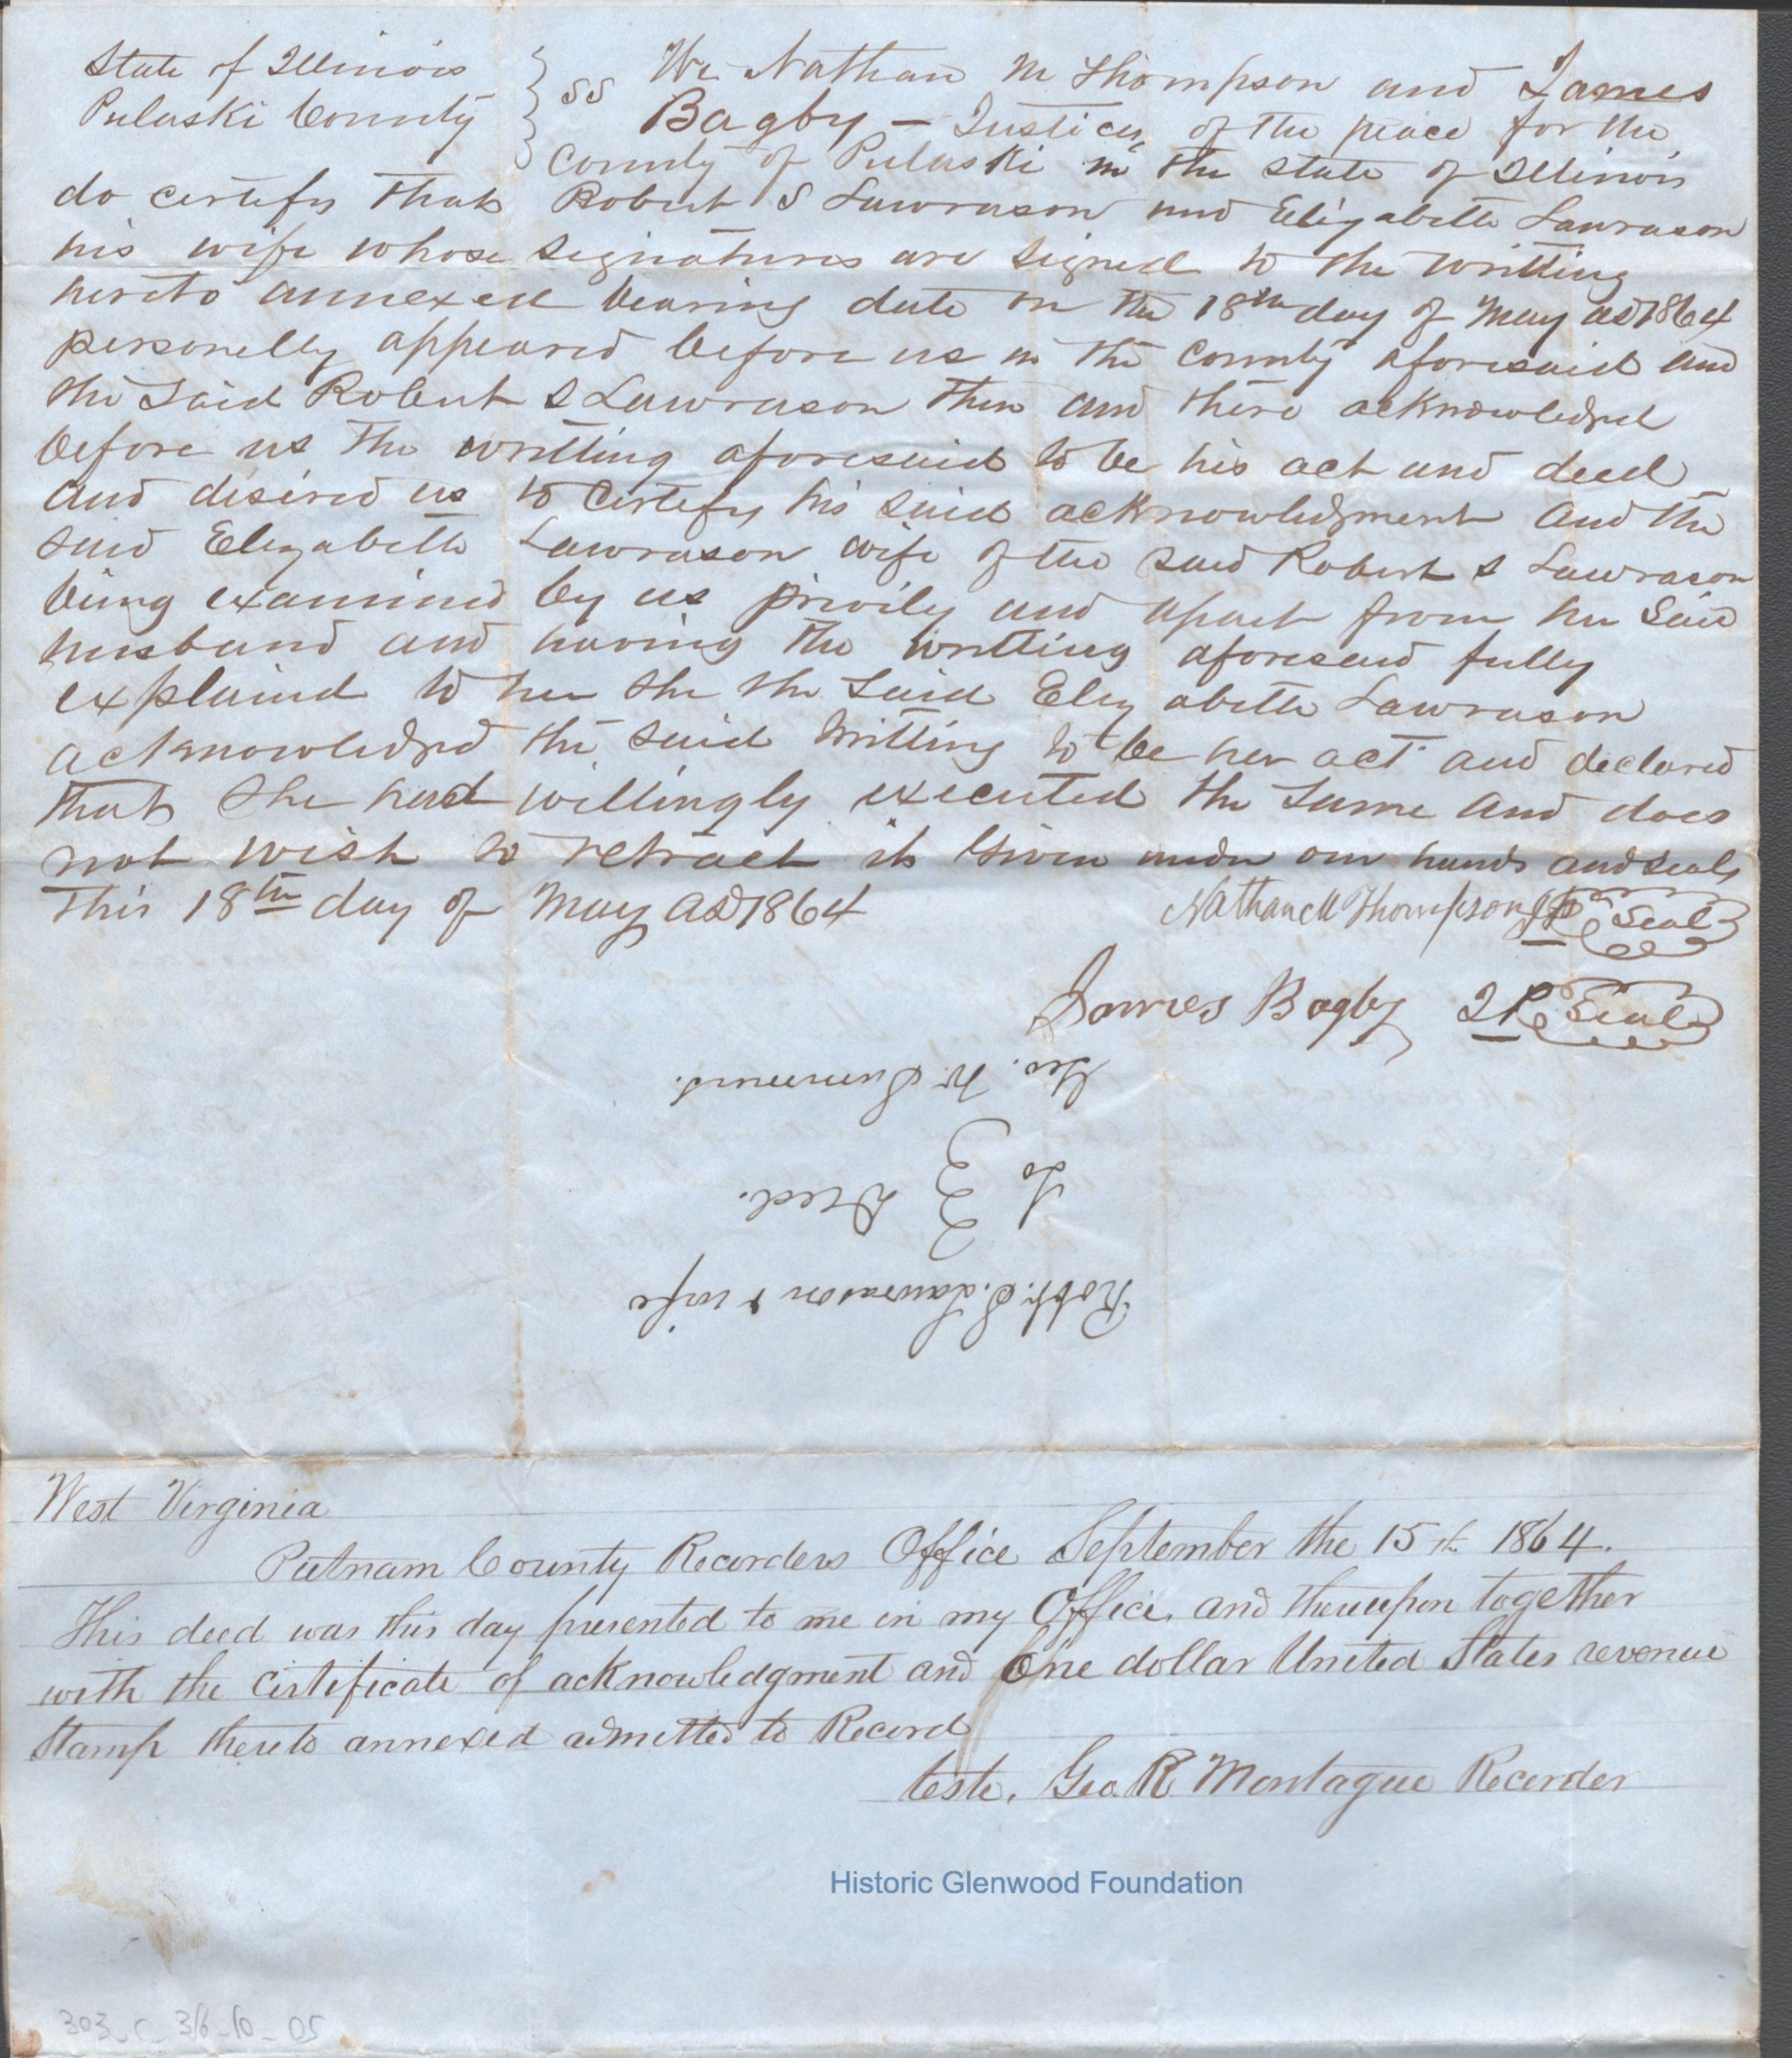 State of Illinois } ss We Nathan M Thompson and James
Pulaski County } Bagby – Justices of the peace for the
County of Pulaski in the State of Illinois
do certify that Robert S Lawrason and Elizabeth Lawrason
his wife whose signatures are signed to the writting
hereto annexed bearing date on the 18th day of May AD 1864
personelly appeared before us in the County aforesaid and
the Said Robert S Lawrason then and there acknowledged
before us the writting aforesaid to be his act and deed
and desired us to certify his said acknowledgment and the
said Elizabeth Lawrason wife of the said Robert S Lawrason
being examined by us privily and apart from her Said
husband and having the writting aforesaid fully
explaind to her she the Said Elizabeth Lawrason
acknowledged the said writting to be her act and declared
that She had willingly executed the Same and does
not wish to retract it Given under our hands and seals
This 18th day of May AD 1864 Nathan M Thompson JP Seal
James Bagby JP Seal
Robt. S. Lawrason & wife
To } Deed.
Geo. W. Summers.
West Virginia
Putnam County Recorders Office September the 15th 1864.
This deed was this day presented to me in my Office, and thereupon together
with the certificate of acknowledgment and One dollar United States revenue
Stamp thereto annexed admitted to Record
teste, Geo. R Montague Recorder
Historic Glenwood Foundation